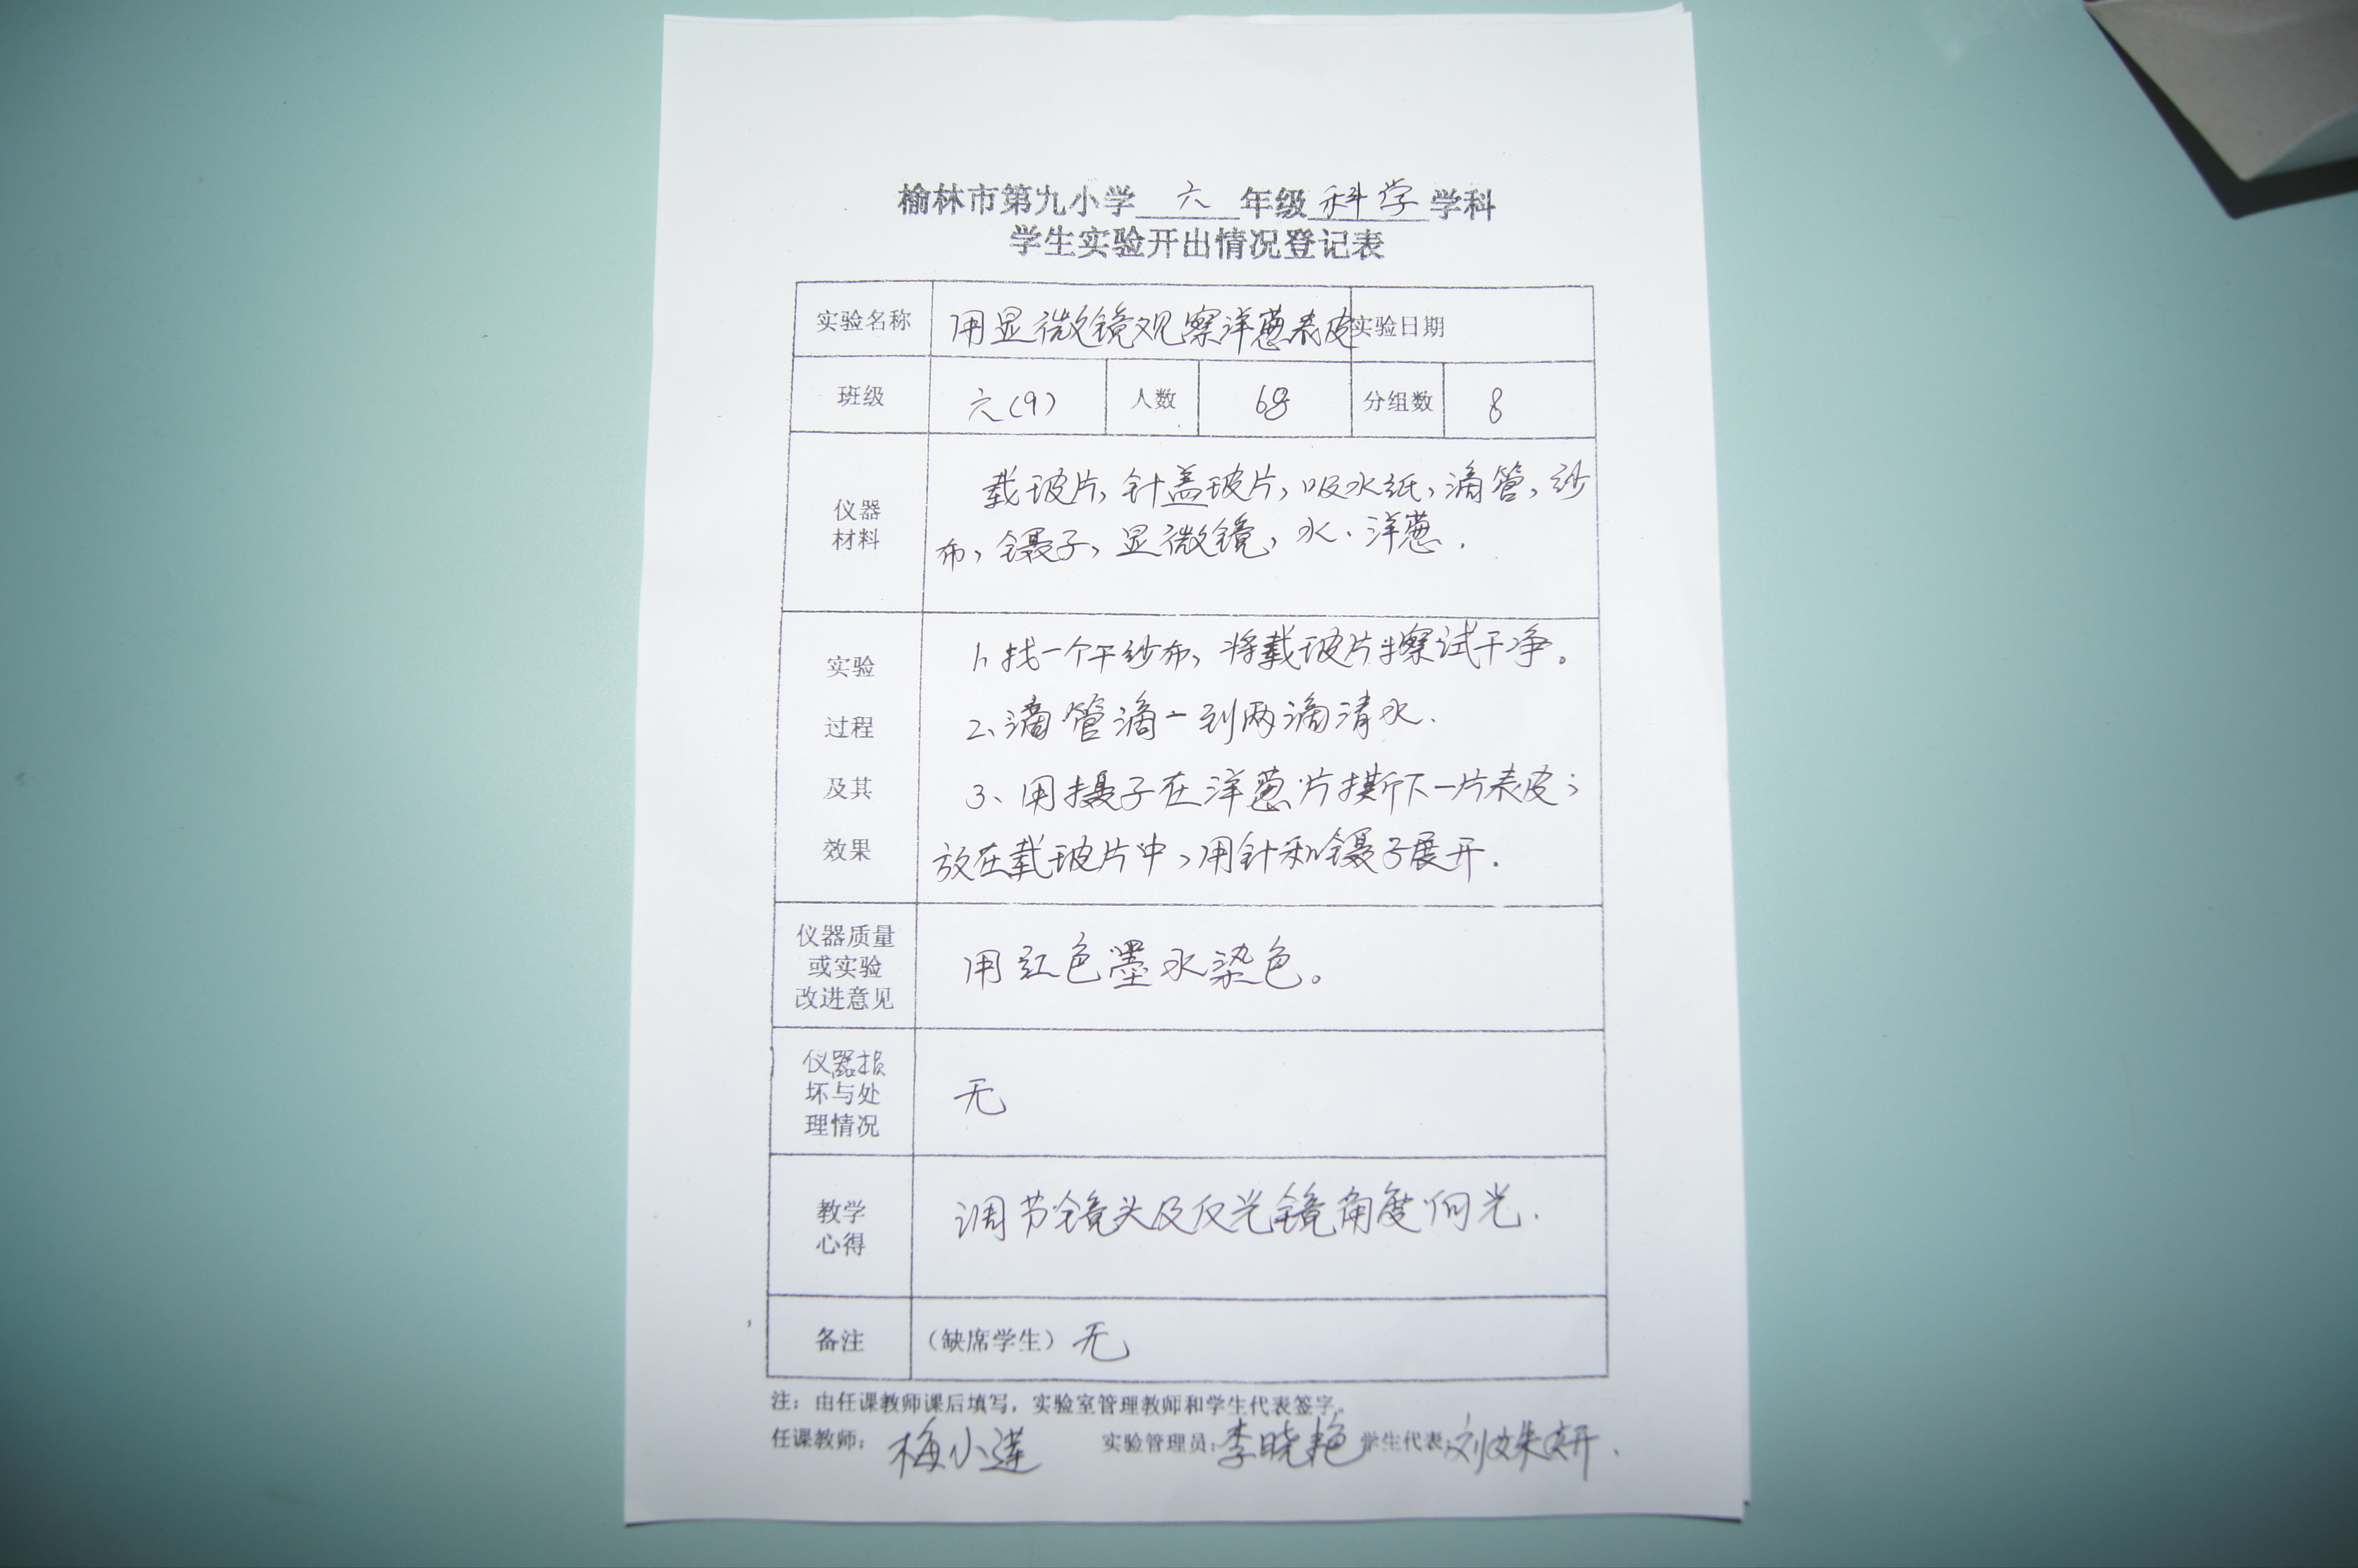 榆林市第九小学 六 年级 科学 学科
学生实验开出情况登记表
实验名称 用显微镜观察洋葱表皮 实验日期
班级 六(9) 人数 68 分组数 8
仪器
材料
载玻片，针盖玻片，吸水纸，滴管，纱
布，镊子，显微镜，水、洋葱.
实验
过程
及其
效果
1、找一个干纱布，将载玻片擦试干净。
2、滴管滴一到两滴清水.
3、用摄子在洋葱片撕下一片表皮；
放在载玻片中，用针和镊子展开.
仪器质量
或实验
改进意见
用红色墨水染色。
仪器损
坏与处
理情况
无
教学
心得
调节镜头及反光镜角度向光.
备注 （缺席学生）无
注：由任课教师课后填写，实验室管理教师和学生代表签字。
任课教师：梅小莲 实验管理员：李晓艳 学生代表：刘姝妍.